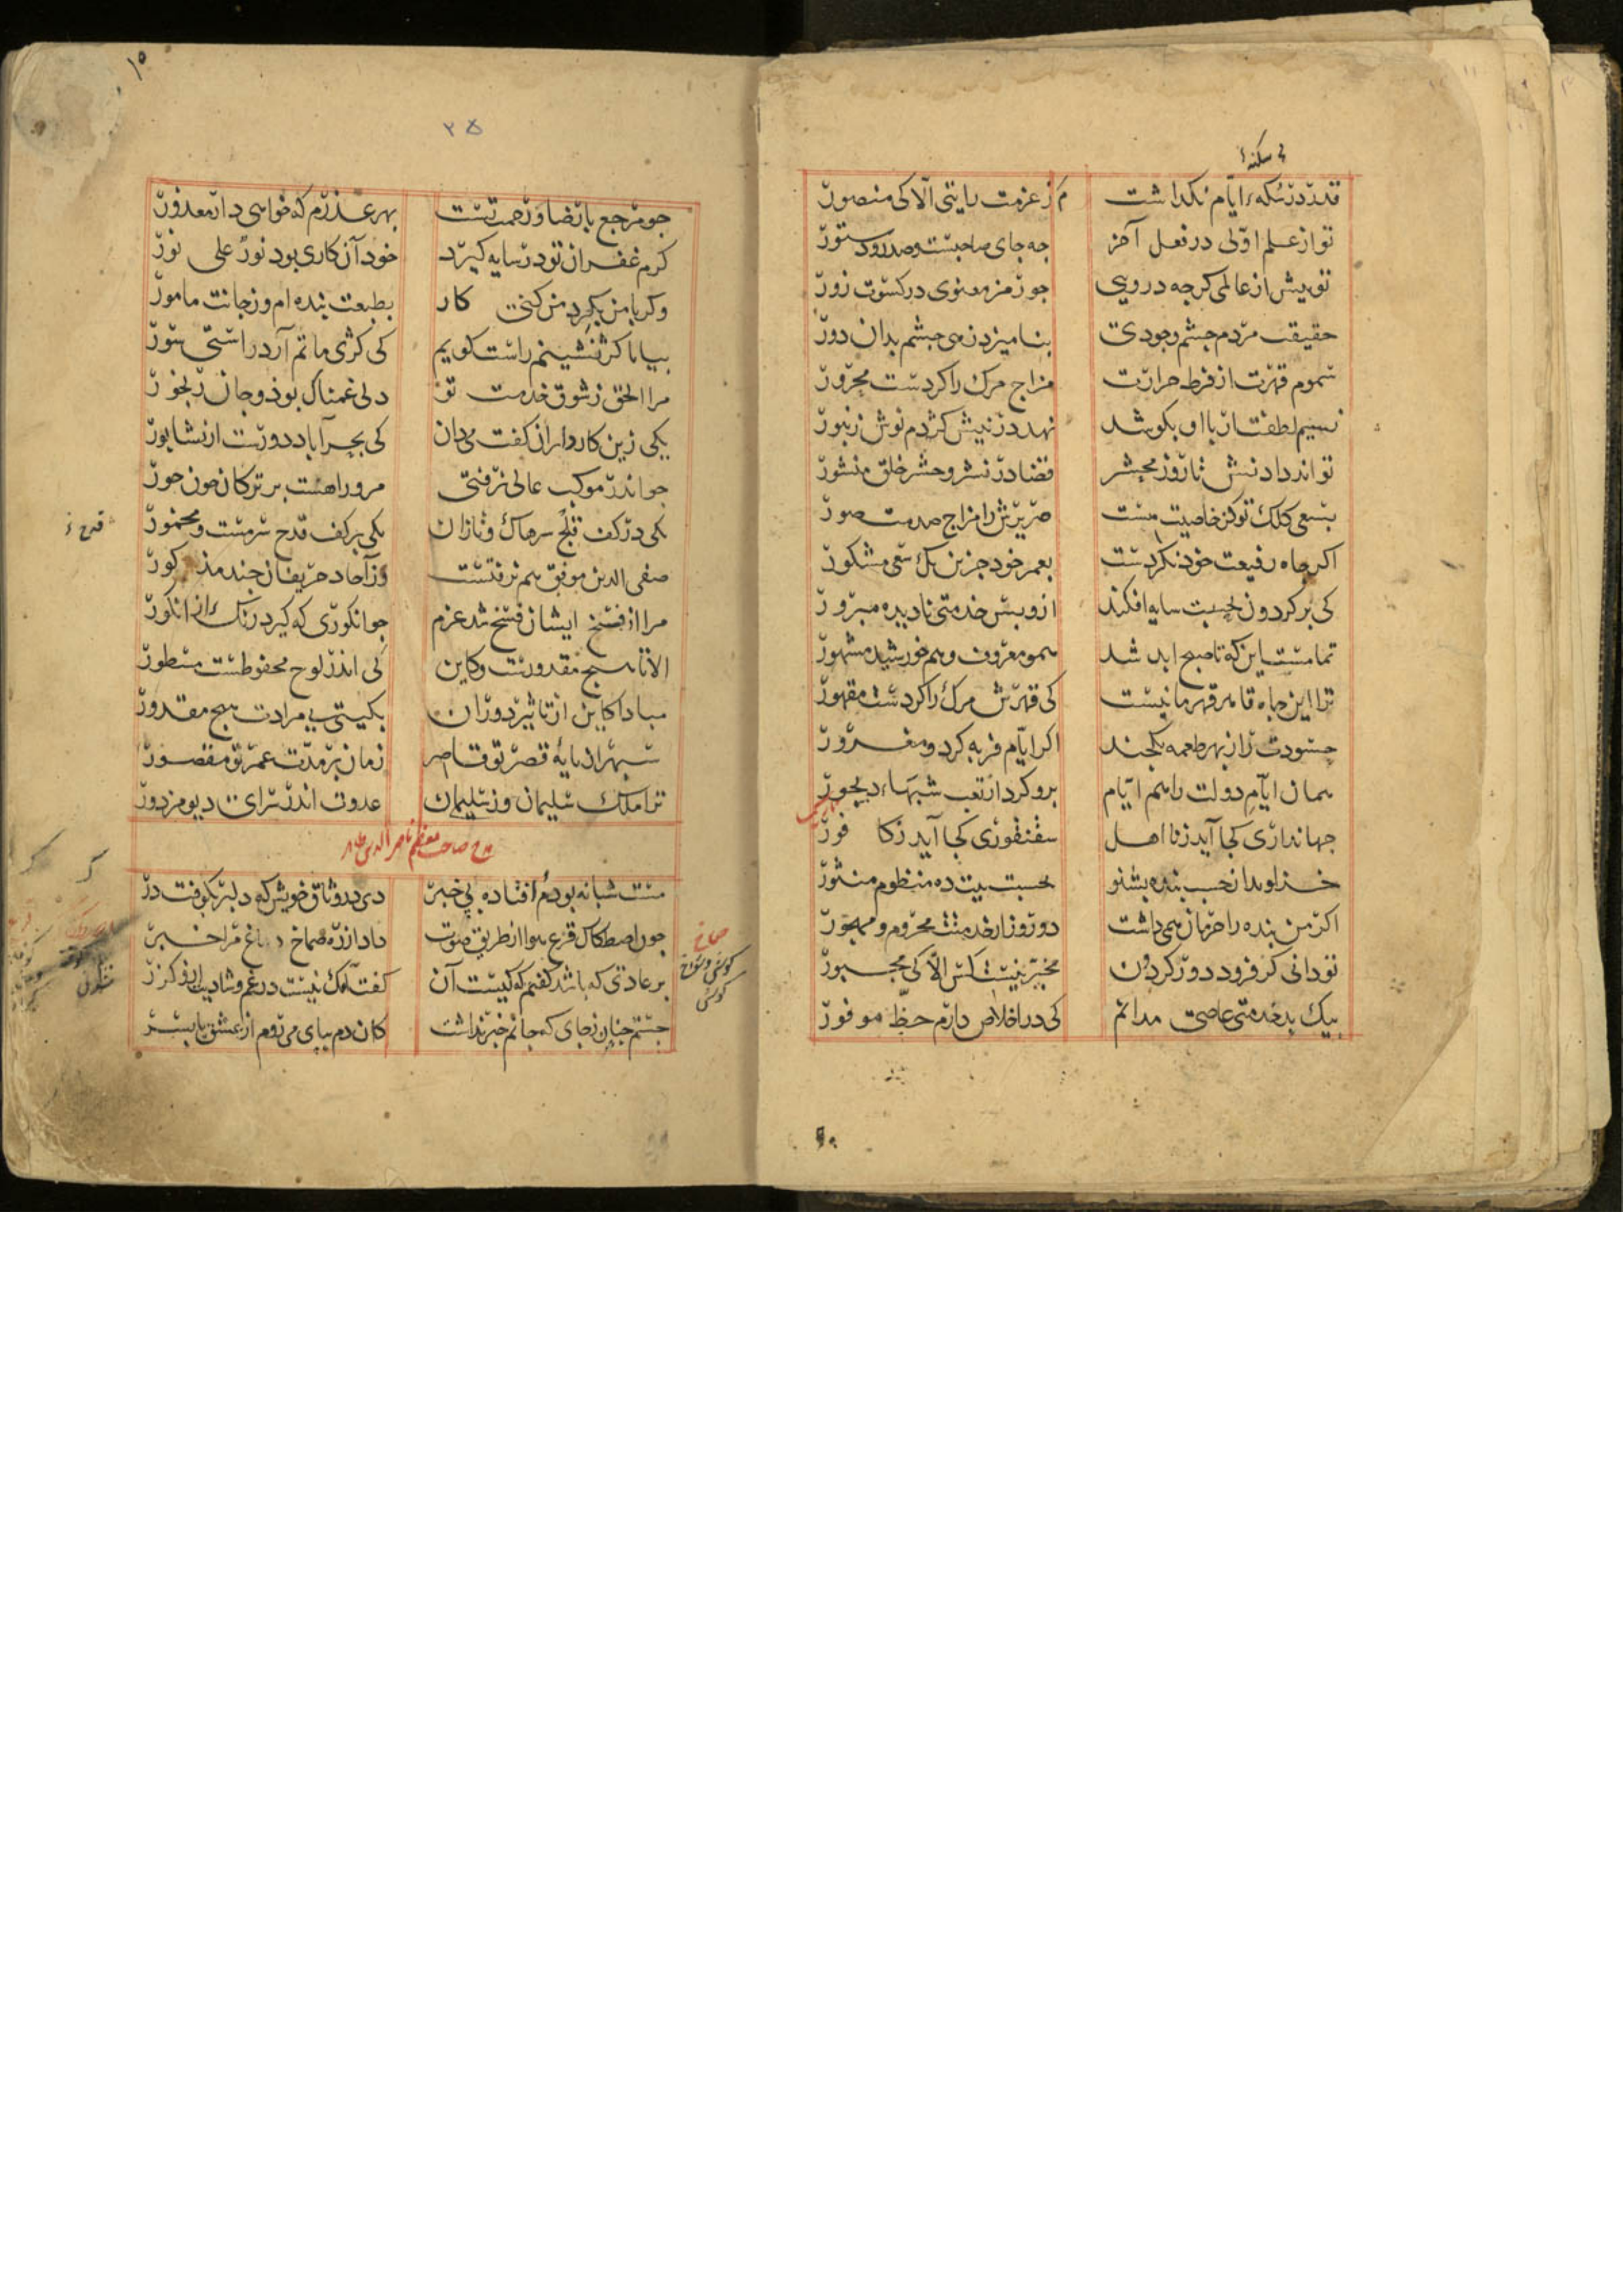 قدر در سکهٔ ایام نکذاشت ز عزمت رایتی الا کی منصور
تو از علم اولی در فعل آخر جه جای صاحبست و صدر و دستور
تو بیش از عالمی کرجه درویی جو رمز معنوی در کسوت زور
حقیقت مردم جشم وجودی بنامیزد زهی جشم بدان دور
سموم قهرت از فرط حرارت مزاج مرک را کردست محرور
نسیم لطفت ار با او بکوشد نهد در نیش کژدم نوش زنبور
تواند داد نش تا روز محشر قضا در نشر و حشر خلق منشور
بسعی کلک تو کز خاصیت هست صریرش را مزاج صدمت صور
اکر جاه رفیعت خود نکردست بعمر خود جزین یک سعی مشکور
کی بر کردون بحسبت سایه افکند ازو بس خدمتی نادیده مبرور
تمامست این که تا صبح ابد شد همو معروف و هم خورشید مشهور
ترا این جاه قاهر قهرمانیست کی قهرش مرک را کردست مقهور
حسودت را ز بهر طعمه یکجند اکر ایام فربه کرد و مغرور
همان ایام دولت را هم ایام برو کرد از تعب شبهاء دیجور
جهانداری کجا آید ز نا اهل سقنقوری کجا آید ز کافور
خداوندا ز حسب بنده بشنو بحسبت بیت ده منظوم منثور
اکر من بنده را حرمان همی داشت دو روز از خدمتت محروم و مهجور
تو دانی کز فرود دور کردون مخیر نیست کس الا کی مجبور
بیک بد خدمتی عاصی مدانم کی در اخلاص دارم حظ موفور
۱۵
۲۵
جو مرجع با رضا و رحمت تست بهر عذرم که خواهی دار معذور
کرم غفران تو در سایه کیرد خود آن کاری بود نور علی نور
وکر با من بکرد من کنی کار بطبعت بنده ام وز جانت مامور
بیا تا کژ نشینم راست کویم کی کژی ماتم آرد راستی سور
مرا الحق ز شوق خدمت تو دلی غمناک بوذ و جان رنجور
یکی زین کارداران کفت می دان کی بحرآباد دورست از نشابور
جو اندر موکب عالی نرفتی مرو راهست بر ترکان خون خور
یکی در کف قلج سرهاک و تازان یکی بر کف قدح سرمست و مخمور
صفی الدین موفق هم نرفتست وز آحاد حریفان جند مذکور
مرا از فسخ ایشان فسخ شد عزم جو انکوری که کیرد رنک از انکور
الا تا هیج مقدورست و کاین کی اندر لوح محفوظست مسطور
مبادا کاین از تاثیر دوران بکیتی بی مرادت هیج مقدور
سپهر از پایهٔ قصر تو قاصر زمان بر مدت عمر تو مقصور
ترا ملک سلیمان وز سلیمان عدوت اندر سرای دیو مزدور
مدح صاحب معظم ناصر الدین طاهر
مست شبانه بودم افتاده بی خبر دی در وثاق خویش که دلبر بکوفت در
جون اصطکاک قرع هوا از طریق صوت داد از ره صماخ دماغ مرا خبر
بر عادتی که باشد کفتم که کیست آن کفت آنک نیست در غم و شادیت ازو کزر
جستم جنان ز جای که جانم خبر نداشت کان دم بپای می روم از عشق یا بسر
صماخ
کوش و سوراخ
کوش